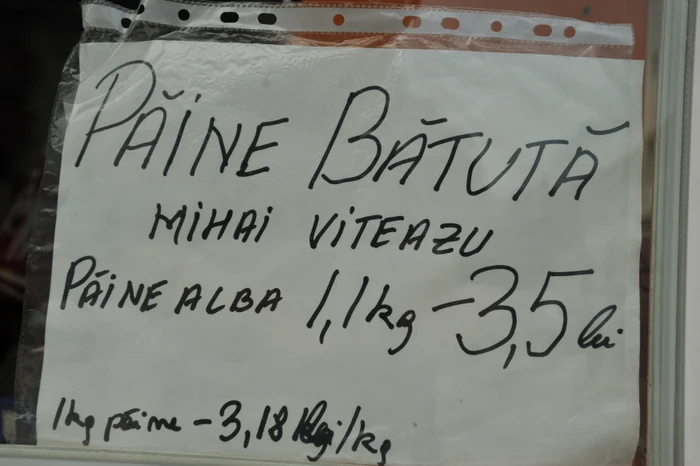 PĂINE BĂTUTĂ
MIHAI VITEAZU
PĂINE ALBA 1,1kg - 3,5 lei
1kg păine - 3,18 lei/kg